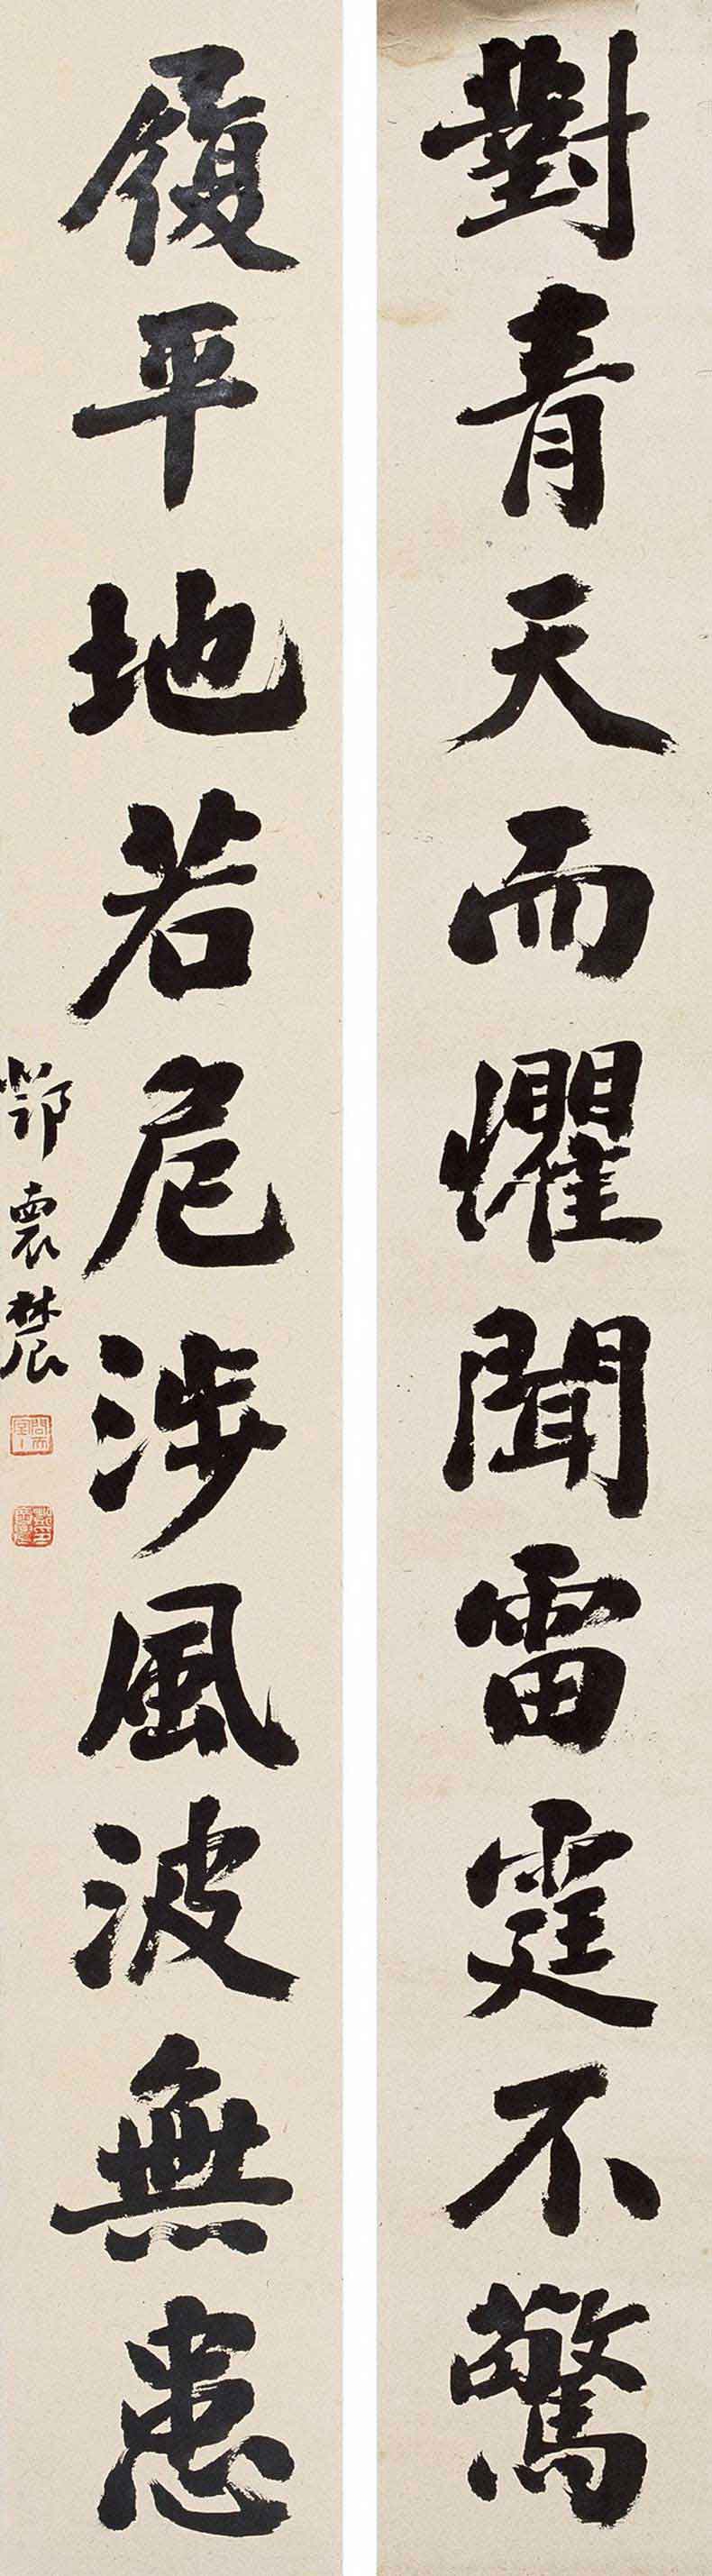 對青天而懼聞雷霆不驚
履平地若危涉風波無患
鄂裏農